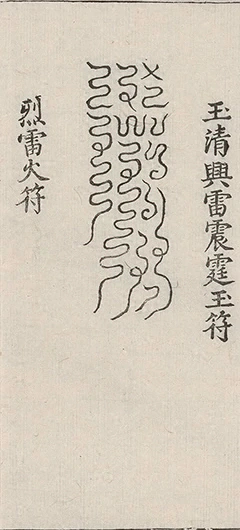 玉清興雷震霆玉符
烈雷火符